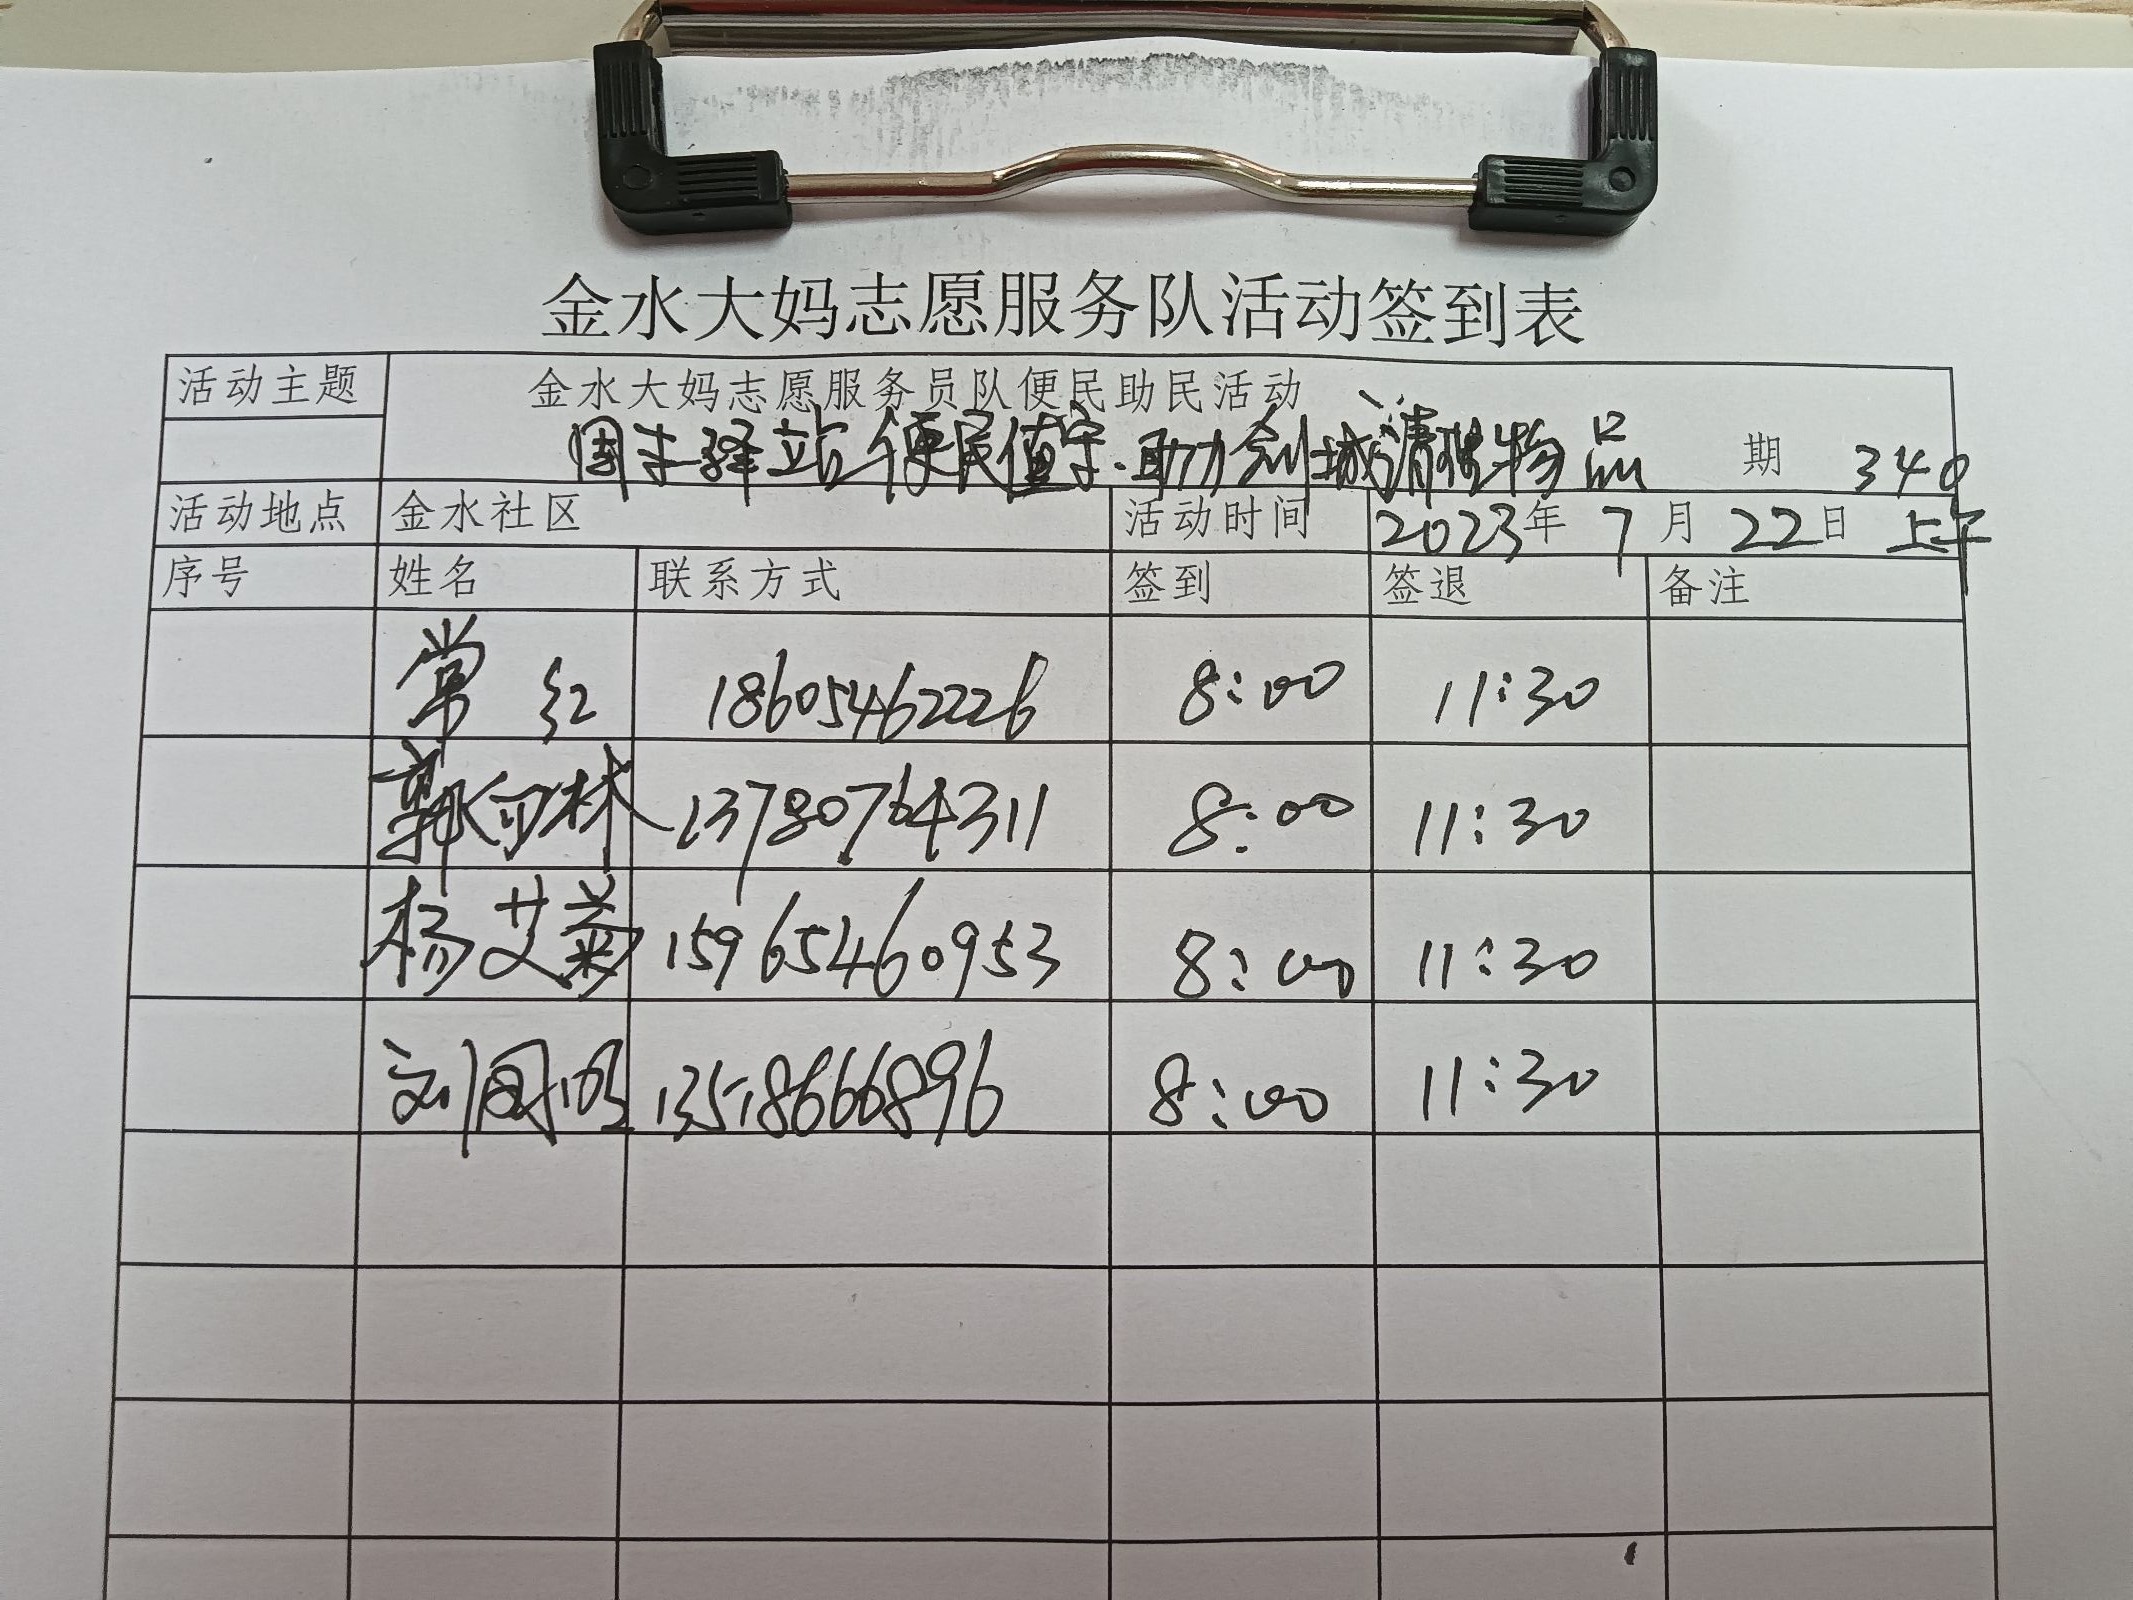 金水大妈志愿服务队活动签到表
活动主题 金水大妈志愿服务员队便民助民活动
周末驿站便民值守.助力创城清理物品 期 340
活动地点 金水社区 活动时间 2023年 7月 22日 上午
序号 姓名 联系方式 签到 签退 备注
常红 18605462226 8:00 11:30
郭向林 13780764311 8:00 11:30
杨艾菊 15965460953 8:00 11:30
刘国明 13518666896 8:00 11:30